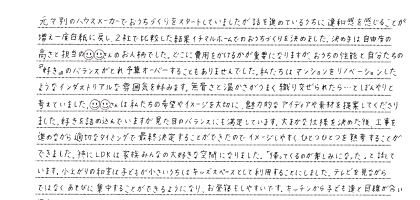 元々別のハウスメーカーでおうちづくりをスタートしていましたが話を進めているうちに違和感を感じることが
増え一度白紙に戻し、2社で比較した結果イチマルホームでのおうちづくりを決めました。決め手は自由度の
高さと担当の さんのお人柄でした。どこに費用をかけるかが重要になりますが、おうちの性能と自分たちの
"好き"のバランスがとれ予算オーバーすることもありませんでした。私たちはマンションをリノベーションした
ようなインダストリアルな雰囲気を好みます。無骨さと温かさがうまく織りなせられたら…とぼんやりと
考えていました。 さんは私たちの希望やイメージを大切に、魅力的なアイディアや素材を提案してくださり
ました。好きを詰め込んでいますが見た目のバランスにも満足しています。大まかな仕様を決めた後、工事を
進めながら適切なタイミングで最終決定することができたのでイメージしやすくひとつひとつを熟考することが
できました。特にLDKは家族みんなの大好きな空間になりました。「帰ってくるのが楽しみになった」と話して
います。小上がりの和室は子どもが小さいうちはキッズスペースとして利用することにしました。テレビを見ながら
ではなくあそびに集中することができるようになり、お昼寝もしやすいです。キッチンから子ども達と目線が合い